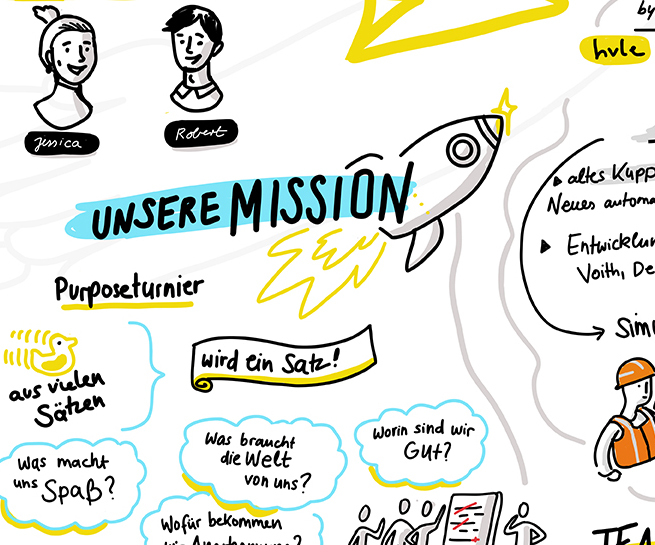 Jessica
Robert
by
hvle
UNSERE MISSION
Purposeturnier
aus vielen
Sätzen
wird ein Satz!
Was macht
uns Spaß?
Was braucht
die Welt
von uns?
Worin sind wir
Gut?
Wofür bekommen
altes Kupp
Neues automa
Entwicklun
Voith, De